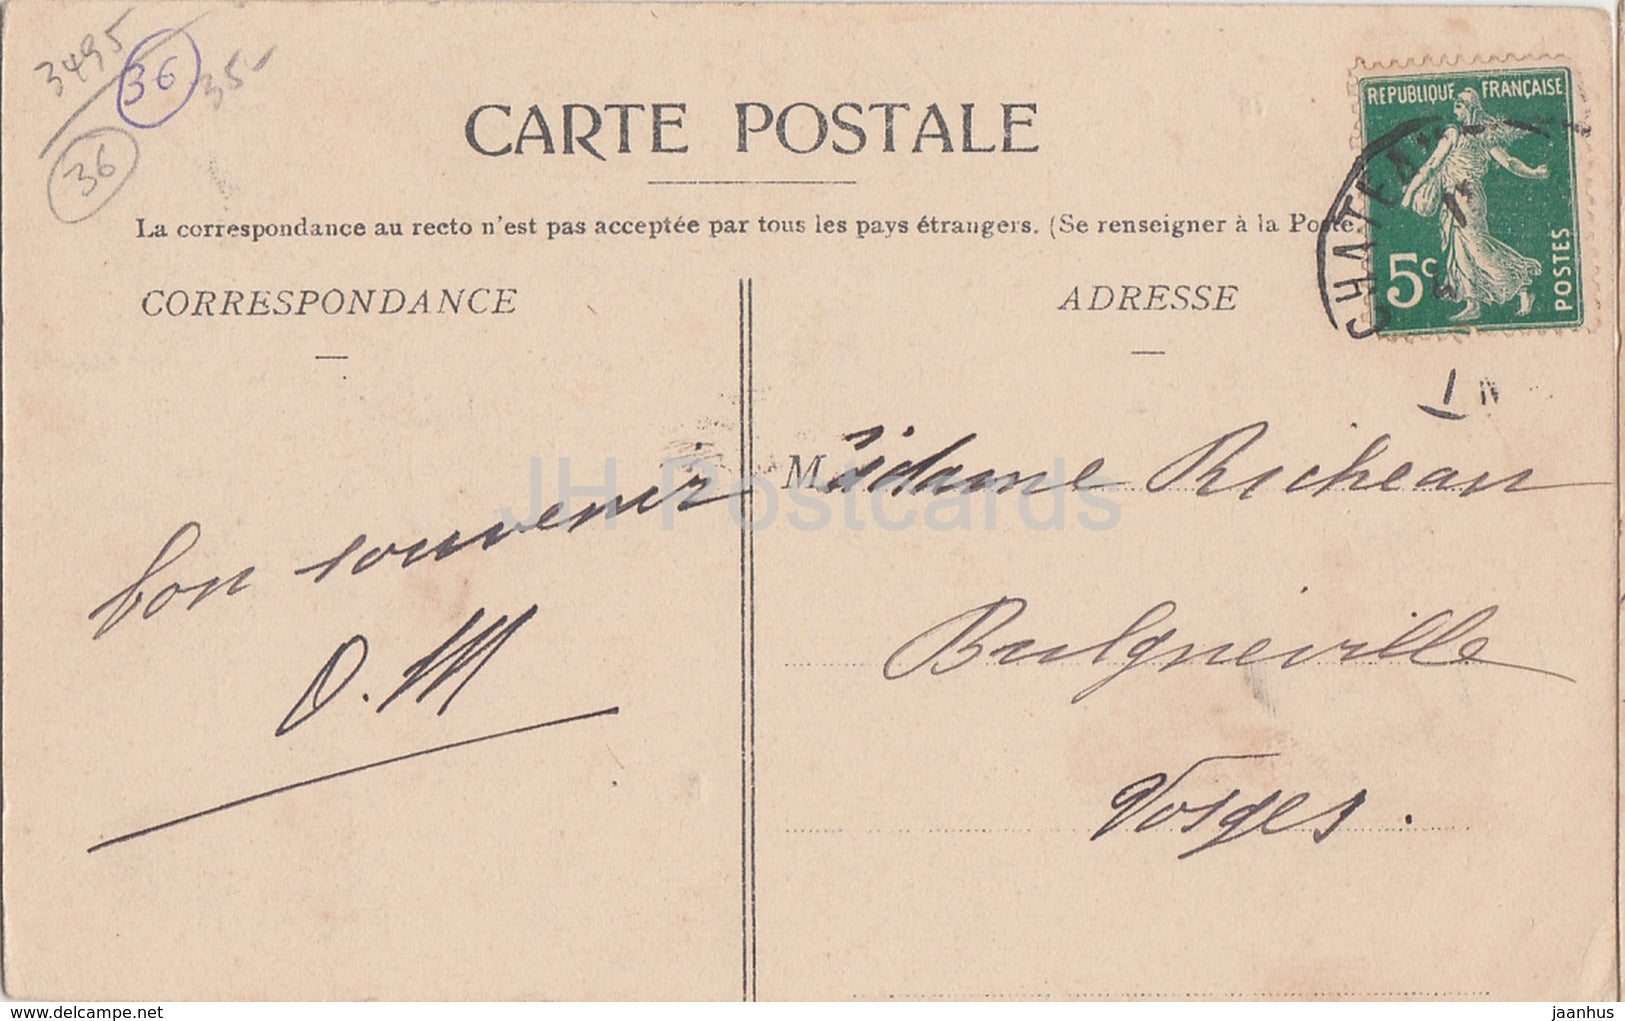 3495
36
35-
36
CARTE POSTALE
La correspondance au recto n'est pas acceptée par tous les pays étrangers. (Se renseigner à la Poste
REPUBLIQUE FRANÇAISE
5c
POSTES
CHATEAU
CORRESPONDANCE
ADRESSE
bon souvenir
O. M
Madame Richeau
Bulgneville
Vosges.
JH Postcards
www.delcampe.net
jaanhus